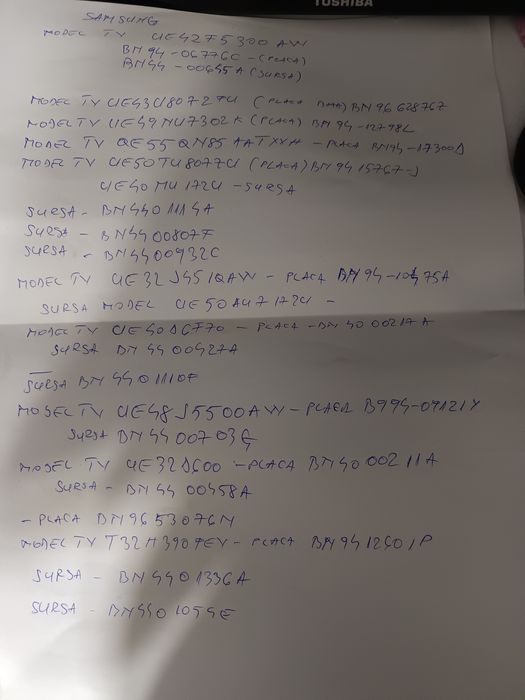 TOSHIBA
SAMSUNG
MODEL TV UE42F5300AW
BN94-06776C-(PLACA)
BN44-00645A (SURSA)
MODEL TV UE43CU8072U (PLACA BMA) BN9662876Z
MODEL TV UE49NU7302K (PLACA) BN 94-12798L
MODEL TV QE55QN85AATXXH - PLACA BN94-17300D
MODEL TV UE50TU8077U (PLACA) BN94 15767-J
UE40MU172U - SURSA
SURSA - BN4401114A
SURSA - BN4400807F
SURSA - BN4400932C
MODEL TV UE32J4510AW - PLACA BN94-10475A
SURSA MODEL UE50AU7172U -
MODEL TV UE40D6770 - PLACA - BN4000217A
SURSA BN4400427A
SURSA BN4401110F
MODEL TV UE48J5500AW - PLACA B994-09121Y
SURSA BN4400703G
MODEL TV UE32D600 - PLACA BN4000211A
SURSA - BN4400458A
- PLACA BN9653076N
MODEL TV T32H390FEV - PLACA BN9412601P
SURSA - BN4401336A
SURSA - BN4401054E